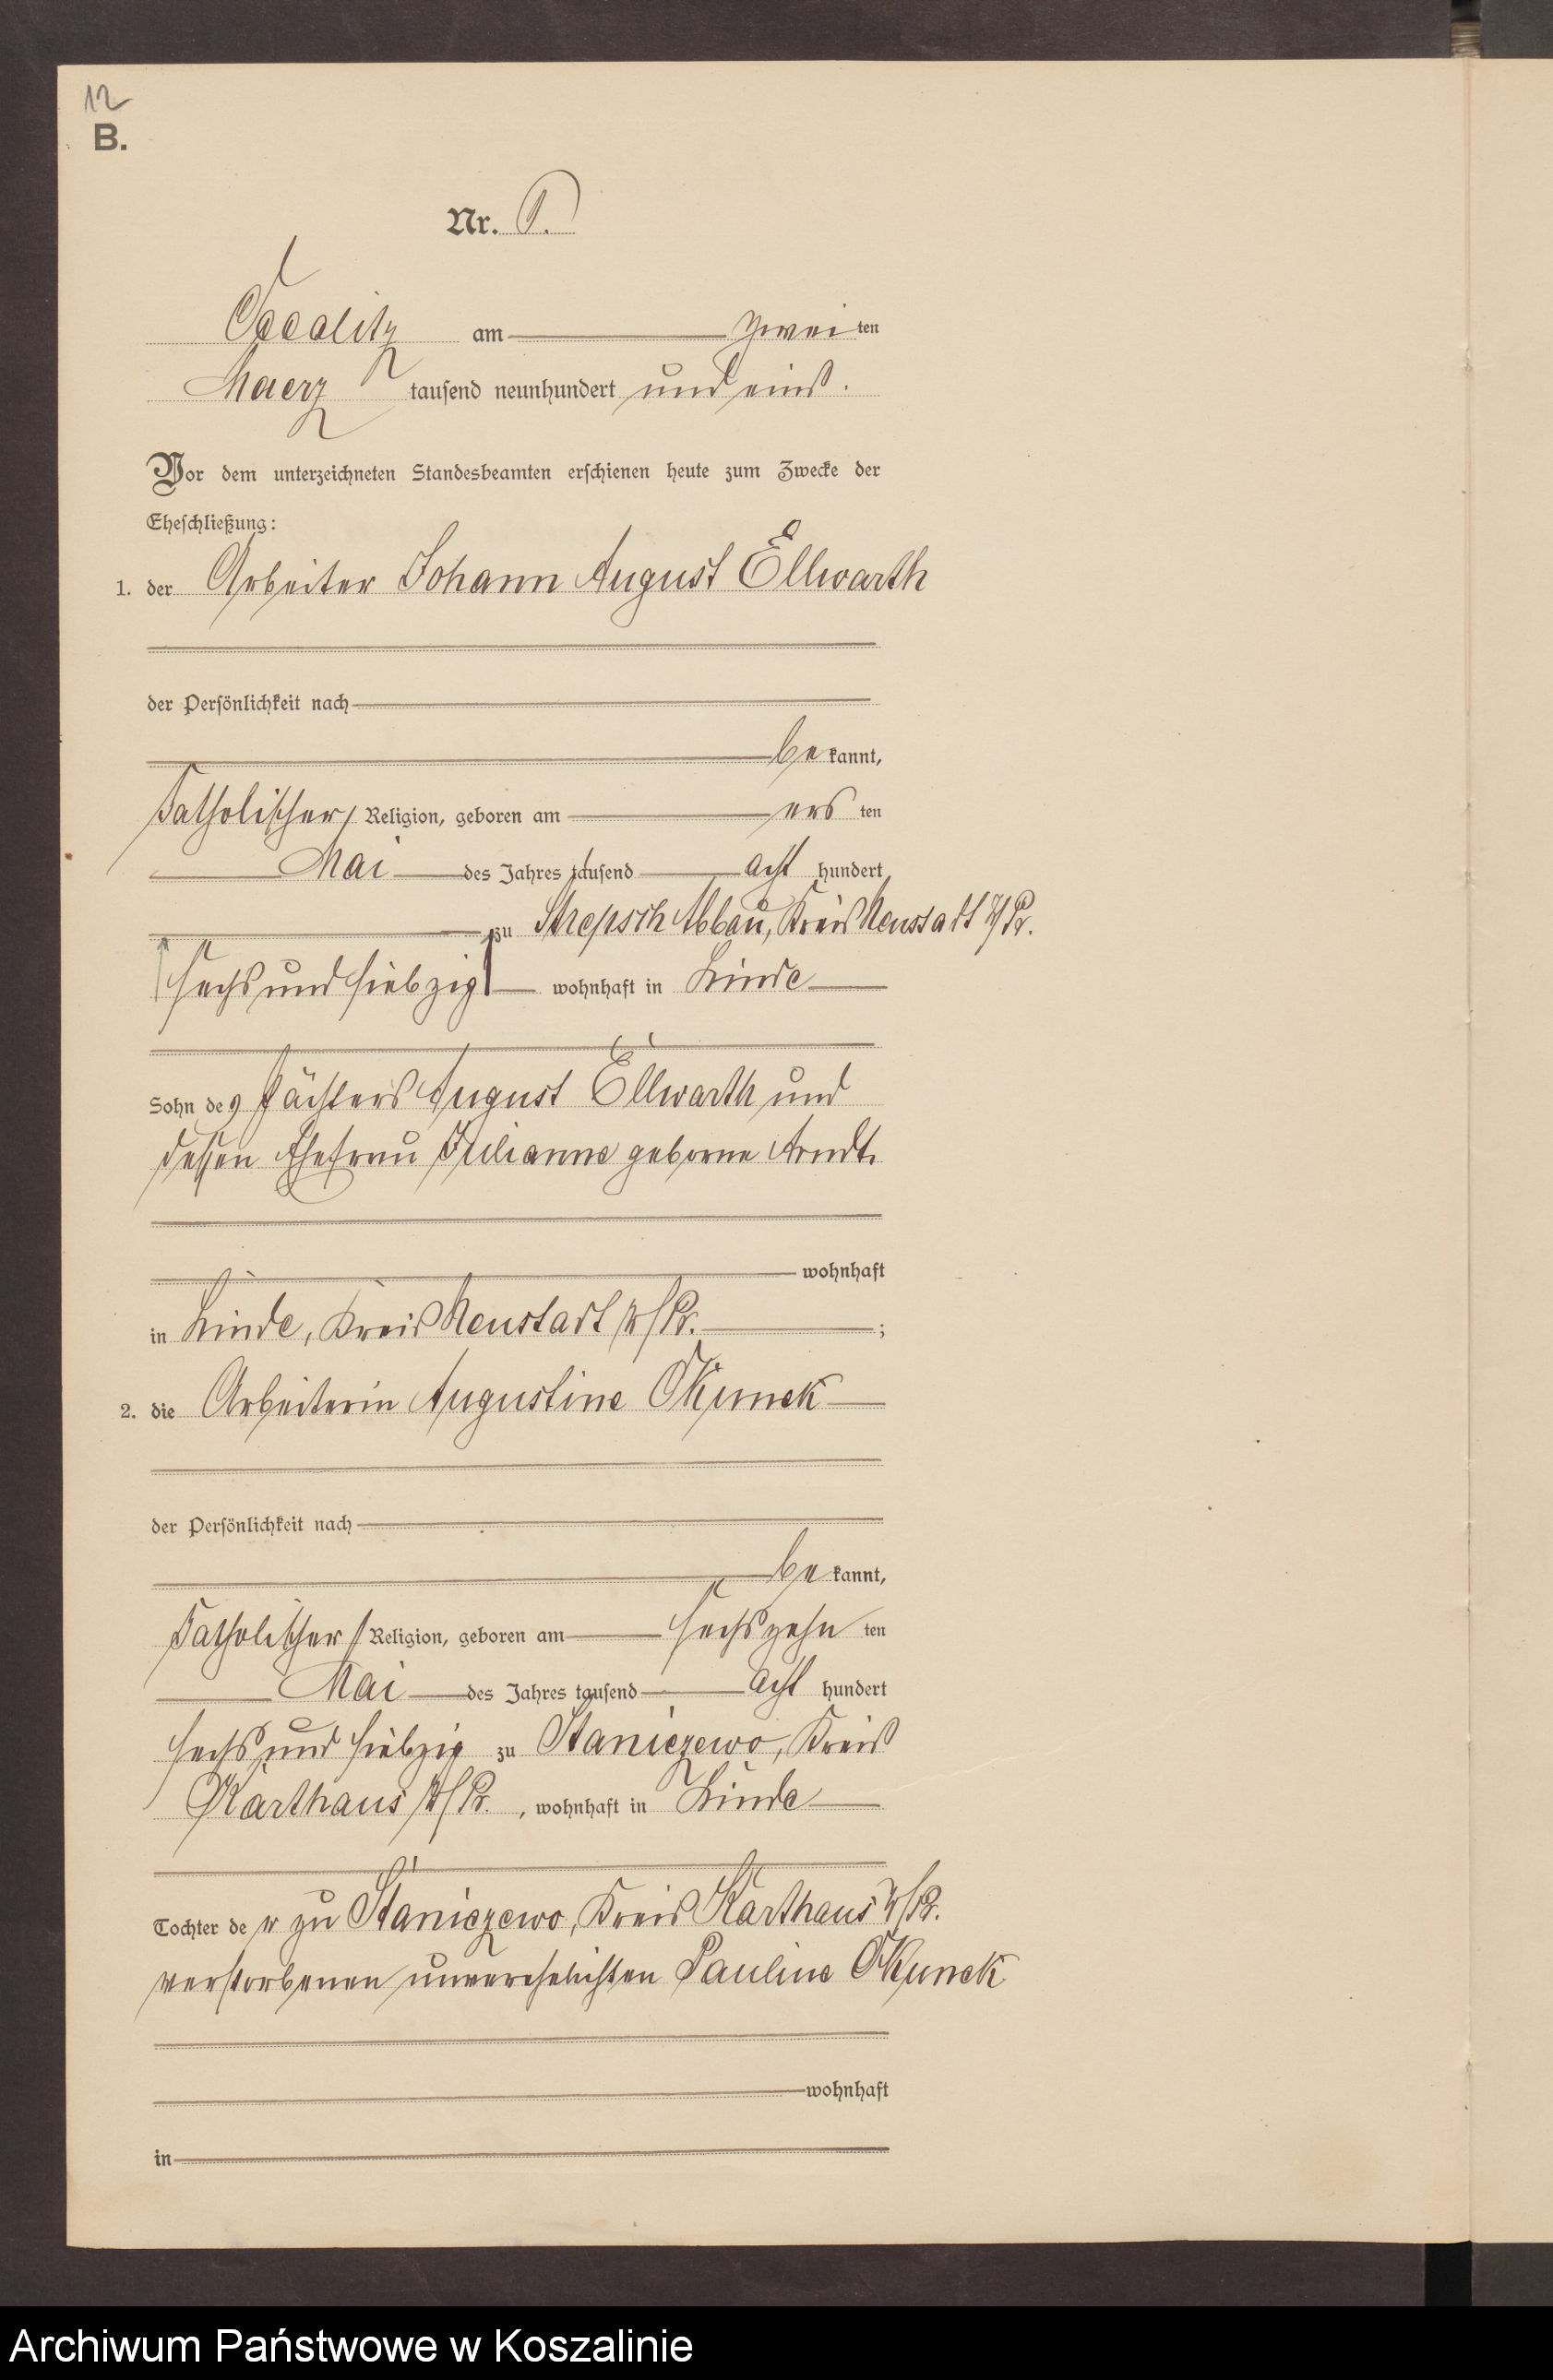 12
B.
Nr.
am zwei ten
Maerz tausend neunhundert und eins.
Vor dem unterzeichneten Standesbeamten erschienen heute zum Zwecke der
Eheschließung:
1. der Arbeiter Johann August Ellwarth
der Persönlichkeit nach
be kannt,
katholischer Religion, geboren am ers ten
Mai des Jahres tausend acht hundert
zu Strepsch Abbau, Kreis Neustadt W/Pr.
sechs und siebzig wohnhaft in Linde
Sohn des Pächters August Ellwarth und
dessen Ehefrau Julianne geborne Arndt.
wohnhaft
in Linde, Kreis Neustadt W/Pr. ;
2. die Arbeiterin Augustine Okunek
der Persönlichkeit nach
be kannt,
katholischer Religion, geboren am sechszehn ten
Mai des Jahres tausend acht hundert
sechs und siebzig zu Staniczewo, Kreis
Karthaus W/Pr. , wohnhaft in Linde
Tochter de r zu Staniczewo, Kreis Karthaus W/Pr.
verstorbenen unverehelichten Pauline Okunek
wohnhaft
in
Archiwum Państwowe w Koszalinie